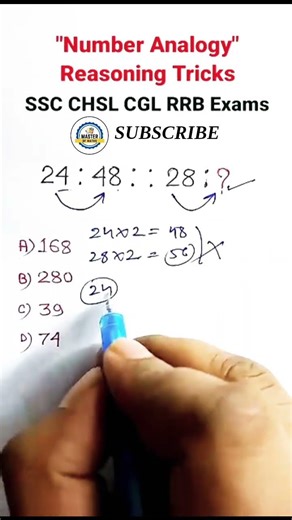 "Number Analogy"
Reasoning Tricks
SSC CHSL CGL RRB Exams
MASTER
SUBSCRIBE
24 : 48 : : 28 : ?
24×2 = 48
28×2 = 56
A) 168
B) 280
24
C) 39
D) 74